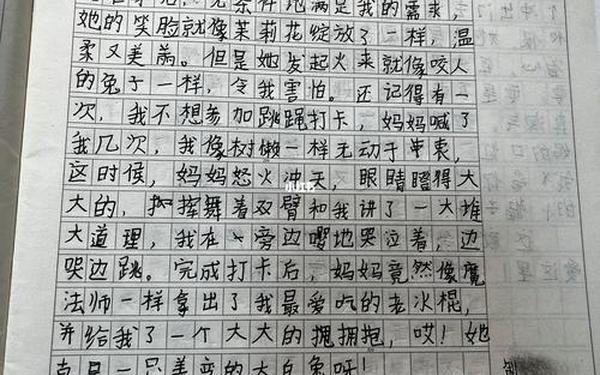 无条件地满足我的需求,
她的笑脸就像茉莉花绽放了一样,温
柔又美丽。但是她发起火来就像咬人
的兔子一样,令我害怕。还记得有一
次,我不想参加跳绳打卡,妈妈喊了
我几次,我像树懒一样无动于衷,
这时候,妈妈怒火冲天,眼睛瞪得大
大的,挥舞着双臂和我讲了一大堆
大道理,我在一旁边嘤地哭泣着,边
哭边跳。完成打卡后,妈妈竟然像魔
法师一样拿出了我最爱吃的老冰棍,
并给我了一个大大的拥抱,哎!她
真是一只善变的大白兔呀!
小红书